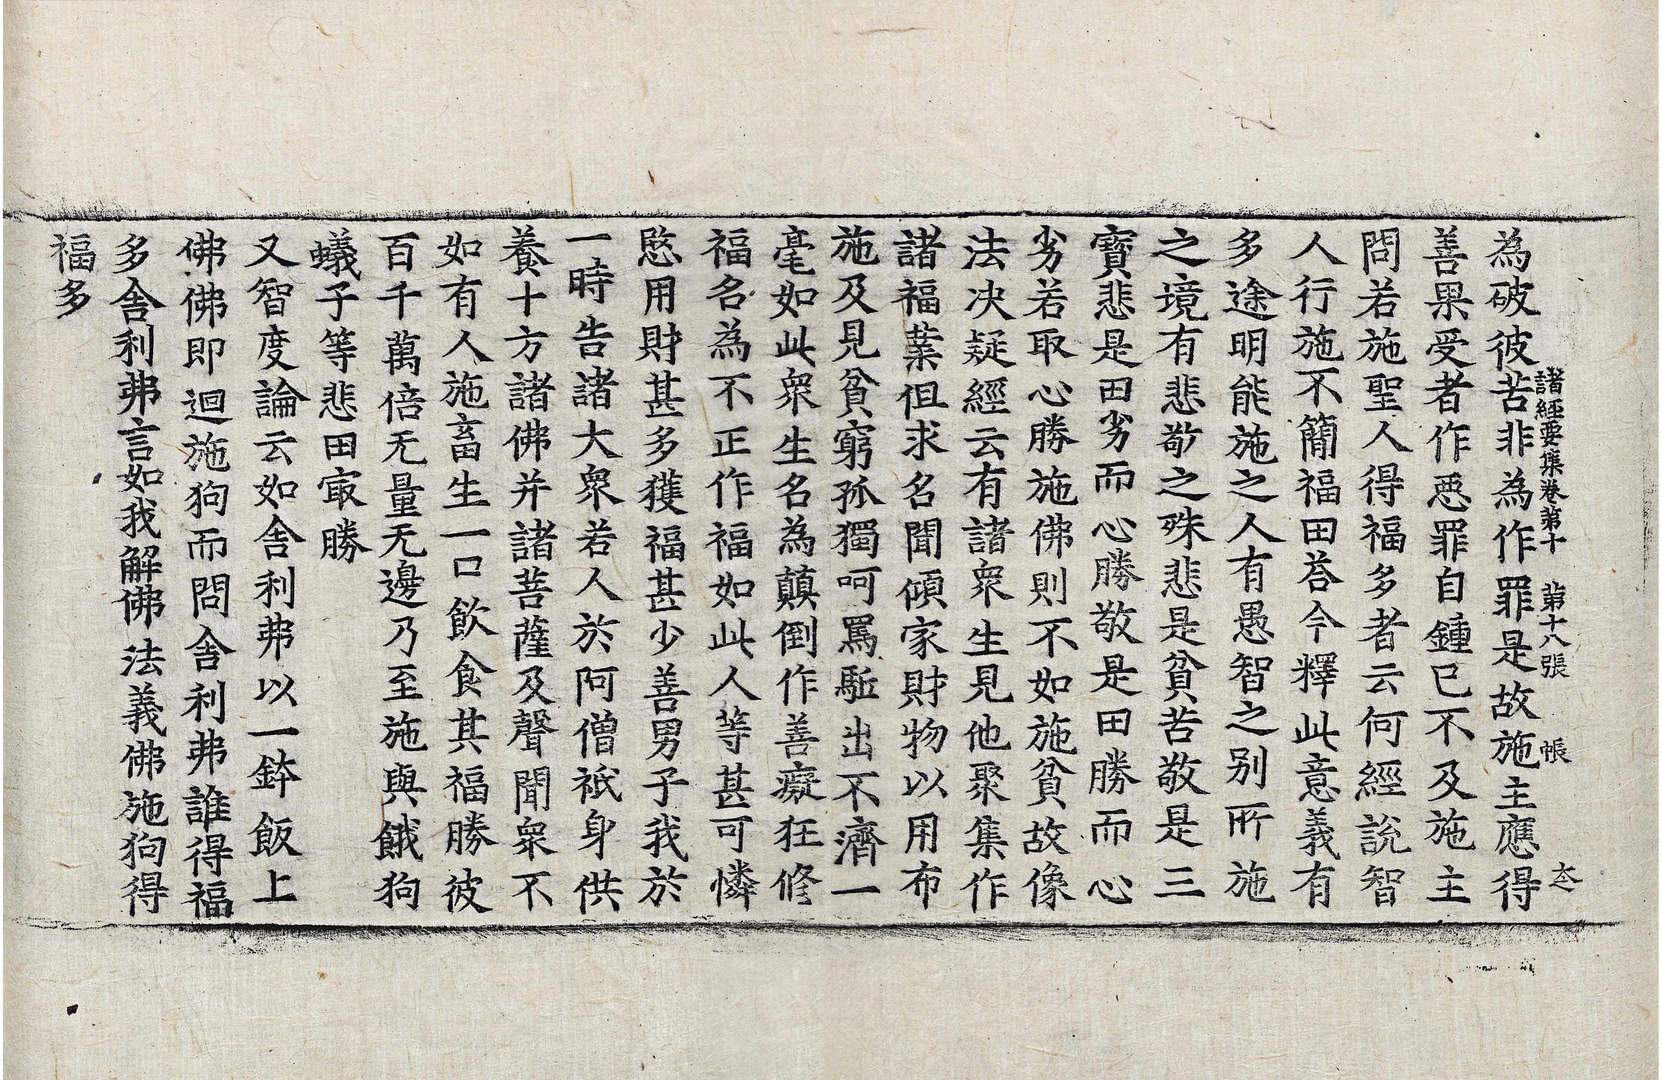 諸經要集卷第十 第十八張 帳
為破彼苦非為作罪是故施主應得
善果受者作惡罪自鍾已不及施主
問若施聖人得福多者云何經說智
人行施不簡福田荅今釋此意義有
多途明能施之人有愚智之别所施
之境有悲敬之殊悲是貧苦敬是三
寶悲是田劣而心勝敬是田勝而心
劣若取心勝施佛則不如施貧故像
法决疑經云有諸衆生見他聚集作
諸福業但求名聞傾家財物以用布
施及見貧窮孤獨呵罵駈出不濟一
毫如此衆生名為顛倒作善癡狂修
福名為不正作福如此人等甚可憐
愍用財甚多獲福甚少善男子我於
一時告諸大衆若人於阿僧祇身供
養十方諸佛并諸菩薩及聲聞衆不
如有人施畜生一口飲食其福勝彼
百千萬倍无量无邊乃至施與餓狗
蟻子等悲田㝡勝
又智度論云如舍利弗以一鉢飯上
佛佛即迴施狗而問舍利弗誰得福
多舍利弗言如我解佛法義佛施狗得
福多